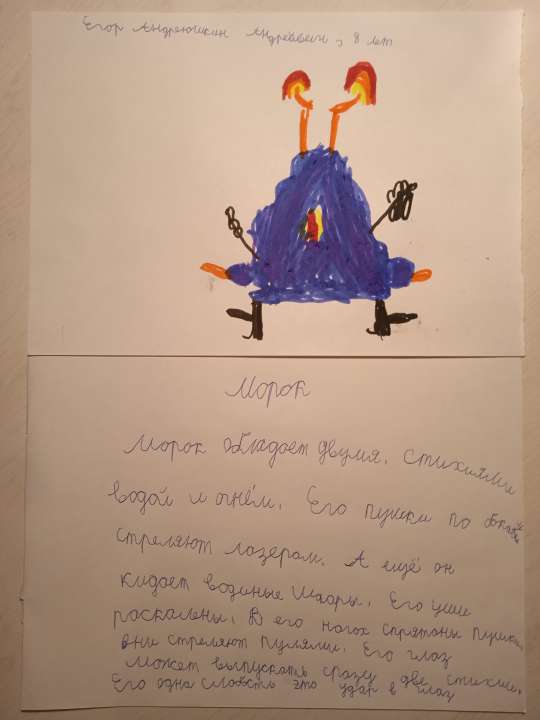 Егор Андреюшкин Андреевич, 8 лет
Морок
Морок обладает двумя. стихиями
водой и огнём. Его пушки по бокам
стреляют лазером. А ещё он
кидает водиные шары. Его уши
роскалыны. В его ногах спрятоны пушки
вни стреляют пулями. Его глаз
может выпускать сразу две стихии.
Его одна слабость это удар в глаз